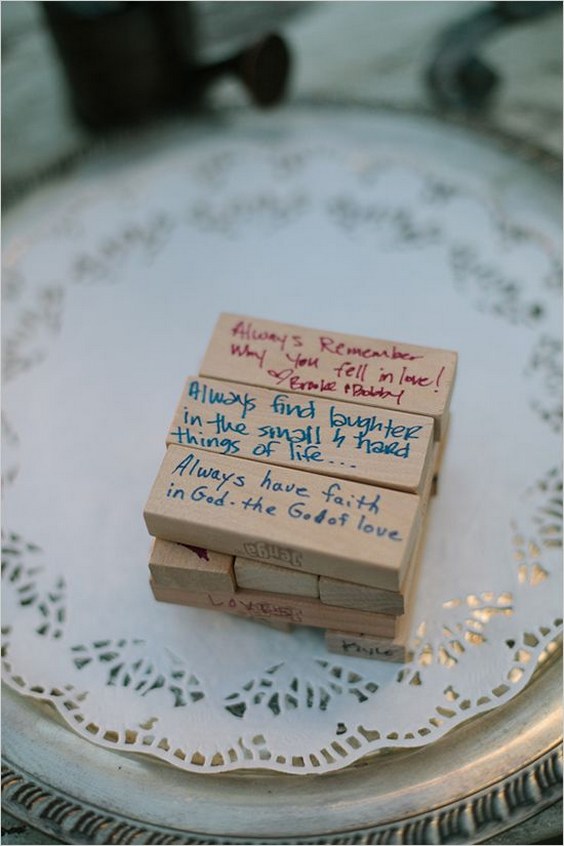 Always Remember
Why you fell in love!
♡ Brooke & Bobby
Always find laughter
in the small & hard
things of life...
Always have faith
in God - the God of love
Jenga
LOVE